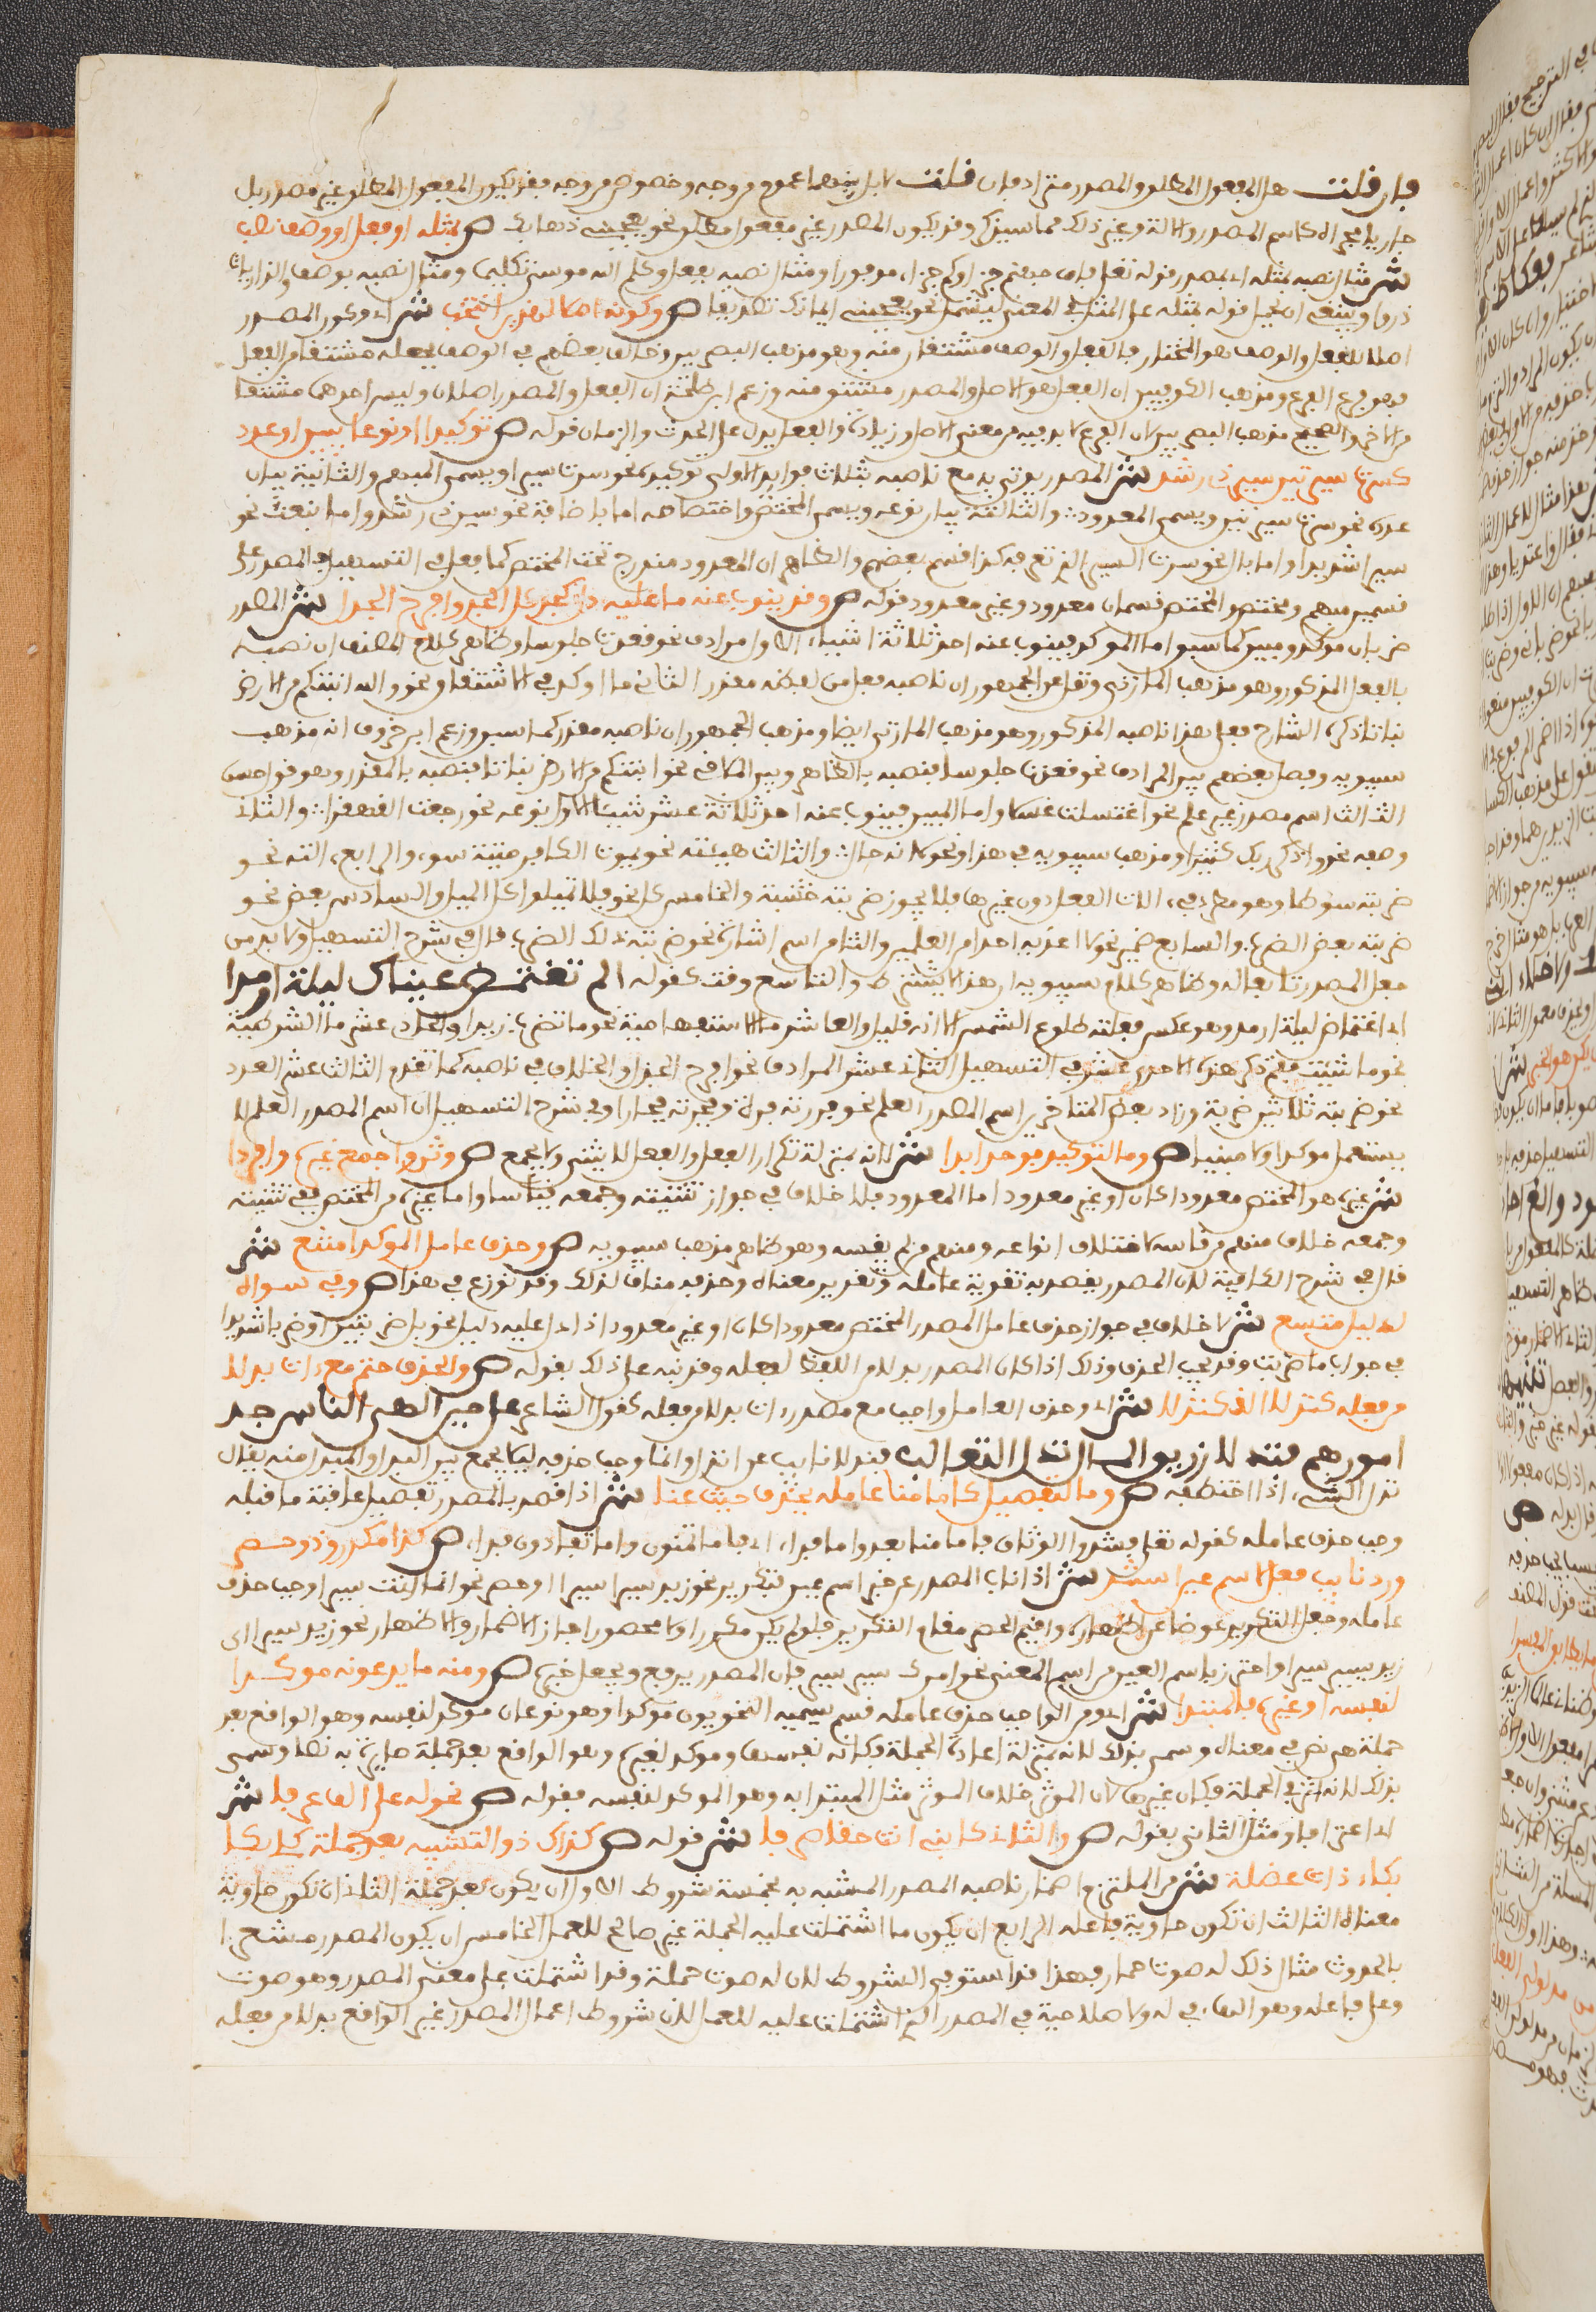 فإن قلت هل المفعول المطلق والمصدر مترادفان قلت لا بل بينهما عموم من وجه وخصوص من وجه فقد يكون المفعول المطلق غير مصدر بل
جاريا مجراه كاسم المصدر والآلة وغير ذلك مما سيذكر وقد يكون المصدر غير مفعول مطلق نحو يعجبني ذهابك ص بمثله او فعل او وصف نصب
ش مثال نصبه بمثله اي بمصدر قوله تعلى فإن جهنم جزاؤكم جزاء موفورا ومثال نصبه بفعل وكلم الله موسى تكليما ومثال نصبه بوصف والذاريات
ذروا وينبغي ان يحمل قوله بمثله على المثل في المعنى ليشمل نحو يعجبني ايمانك تصديقا ص وكونه اصلا لهذين انتخب ش اي وكون المصدر
اصلا للفعل والوصف هو المختار فالفعل والوصف مشتقان منه وهو مذهب البصريين وخالف بعضهم في الوصف فجعله مشتقا من الفعل
فهو فرع الفرع ومذهب الكوفيين ان الفعل هو الاصل والمصدر مشتق منه وزعم ابن طلحة ان الفعل والمصدر اصلان وليس احدهما مشتقا
من الاخر والصحيح مذهب البصريين لان الفرع لا بد فيه من معنى الاصل وزيادة والفعل يدل على الحدث والزمان قوله ص توكيدا او نوعا يبين او عدد
كسرت سيرتين سير ذي رشد ش المصدر يوتى به مع ناصبه لثلاث فوايد الاولى توكيد نحو سرت سيرا ويسمى المبهم والثانية بيان
عدد نحو سرت سيرتين ويسمى المعدود والثالثة بيان نوعه ويسمى المختص واختصاصه اما باضافة نحو سير ذي رشد واما بنعت نحو
سيرا شديدا واما بال نحو سرت السير الذي تعرفه كذا قسم بعضهم والظاهر ان المعدود مندرج تحت المختص كما فعل في التسهيل فالمصدر على
قسمين مبهم ومختص والمختص قسمان معدود وغير معدود قوله ص وقد ينوب عنه ما عليه دل كجد كل الجد وافرح الجذل ش المصدر
ضربان موكد ومبين كما سبق اما الموكد فينوب عنه احد ثلاثة اشياء الاول مرادف نحو قعدت جلوسا وظاهر كلام المصنف ان نصبه
بالفعل المذكور وهو مذهب المازني ونقل عن الجمهور ان ناصبه فعل من لفظه مقدر الثاني ملاق له في الاشتقاق نحو والله انبتكم من الارض
نباتا ذكره الشارح فعلى هذا ناصبه المذكور وهو مذهب المازني ايضا ومذهب الجمهور ان ناصبه مقدر كما سبق وزعم ابن خروف انه مذهب
سيبويه وفصل بعضهم بين المرادف نحو قعدت جلوسا فنصبه بالظاهر وبين الملاقي نحو انبتكم من الارض نباتا فنصبه بالمقدر وهو قول حسن
الثالث اسم مصدر غير علم نحو اغتسلت غسلا واما المبين فينوب عنه احد ثلاثة عشر شيئا الاول نوعه نحو رجعت القهقرى والثاني
وصفه نحو واذكر ربك كثيرا ومذهب سيبويه في هذا ونحوه انه حال والثالث هيئته نحو يموت الكافر ميتة سوء والرابع آلته نحو
ضربته سوطا وهو مطرد في آلات الفعل دون غيرها فلا يجوز ضربته خشبة والخامس كل نحو فلا تميلوا كل الميل والسادس بعض نحو
ضربته بعض الضرب والسابع ضمير نحو لا اعذبه احدا من العالمين والثامن اسم اشارة نحو ضربته ذلك الضرب قال في شرح التسهيل ولا بد من
جعل المصدر تابعا له وظاهر كلام سيبويه ان هذا لا يشترط والتاسع وقت كقوله الم تغتمض عيناك ليلة ارمدا
اي اغتماض ليلة ارمد وهو عكس فعلته طلوع الشمس الا انه قليل والعاشر ما الاستفهامية نحو ما تضرب زيدا والحادي عشر ما الشرطية
نحو ما شئت فقم ذكر هذه الاحد عشر في التسهيل الثاني عشر المرادف نحو افرح الجذل والخلاف في ناصبه كما تقدم الثالث عشر العدد
نحو ضربته ثلاثين ضربة وزاد بعض المتاخرين اسم المصدر العلم نحو بررته برة وفجرته فجارا وفي شرح التسهيل ان اسم المصدر العلم لا
يستعمل موكدا ولا مبينا ص وما لتوكيد فوحد ابدا ش لانه بمنزلة تكرار الفعل والفعل لا يثنى ولا يجمع ص وثن واجمع غيره وافردا
ش غيره هو المختص معدودا كان او غير معدود اما المعدود فلا خلاف في جواز تثنيته وجمعه قياسا واما غيره من المختص ففي تثنيته
وجمعه خلاف منهم من قاسه لاختلاف انواعه ومنهم من لم يقسه وهو ظاهر مذهب سيبويه ص وحذف عامل الموكد امتنع ش
قال في شرح الكافية لان المصدر يقصد به تقوية عامله وتقرير معناه وحذفه مناف لذلك وقد نوزع في هذا ص وفي سواه
لدليل متسع ش لا خلاف في جواز حذف عامل المصدر المختص معدودا كان او غير معدود اذا دل عليه دليل نحو بل ضربتين او ضربا شديدا
في جواب ما ضربت وقد يجب الحذف وذلك اذا كان المصدر بدلا من اللفظ بفعله وقد نبه على ذلك بقوله ص والحذف حتم مع آت بدلا
من فعله كندلا الذ كاندلا ش اي وحذف العامل واجب مع مصدر آت بدلا من فعله كقول الشاعر على حين الهى الناس جل
امورهم فندلا زريق المال ندل الثعالب فندلا نايب عن اندل وانما وجب حذفه ليلا يجمع بين البدل والمبدل منه يقال
ندل الشيء اذا اختطفه ص وما لتفصيل كاما منا عامله يحذف حيث عنا ش اذا قصد بالمصدر تفصيل عاقبة ما قبله
وجب حذف عامله كقوله تعلى فشدوا الوثاق فاما منا بعد واما فداء اي فاما تمنون واما تفادون فداء ص كذا مكرر وذو حصر
ورد نايب فعل لاسم عين استند ش اذا ناب المصدر عن خبر اسم عين بتكرير نحو زيد سيرا سيرا او حصر نحو انما انت سيرا وجب حذف
عامله وجعل التكرير عوضا عن اظهاره واقيم الحصر مقام التكرير فلو لم يكن مكررا ولا محصورا جاز الاضمار والاظهار نحو زيد سيرا اي
زيد يسير سيرا واحترز باسم العين من اسم المعنى نحو امرك سير سير فان المصدر يرفع ويجعل خبره ص ومنه ما يدعونه موكدا
لنفسه او غيره فالمبتدا ش اي ومن الواجب حذف عامله قسم يسميه النحويون موكدا وهو نوعان موكد لنفسه وهو الواقع بعد
جملة هي نص في معناه وسمي بذلك لانه بمنزلة اعادة الجملة فكانه نفسها وموكد لغيره وهو الواقع بعد جملة صايرة به نصا وسمي
بذلك لانه اثر في الجملة فكان غيرها لان الموثر خلاف الموثر فيه مثال المبتدا به وهو الموكد لنفسه فقوله ص نحو له علي الف عرفا ش
اي اعترافا ومثل الثاني بقوله ص والثاني كابني انت حقا صرفا ش قوله ص كذاك ذو التشبيه بعد جملة كلي بكا
بكاء ذات عضلة ش من الملتزم اضمار ناصبه المصدر المشبه به بخمسة شروط الاول ان يكون بعد جملة الثاني ان تكون حاوية
معناه الثالث ان تكون حاوية فاعله الرابع ان يكون ما اشتملت عليه الجملة غير صالح للعمل الخامس ان يكون المصدر مشعرا
بالحدوث مثال ذلك له صوت صوت حمار فهذا قد استوفى الشروط لان له صوت جملة وقد اشتملت على معنى المصدر وهو صوت
وعلى فاعله وهو الهاء في له ولا صلاحية في المصدر الذي اشتملت عليه للعمل لان شروط اعمال المصدر غير الواقع بدلا من فعله